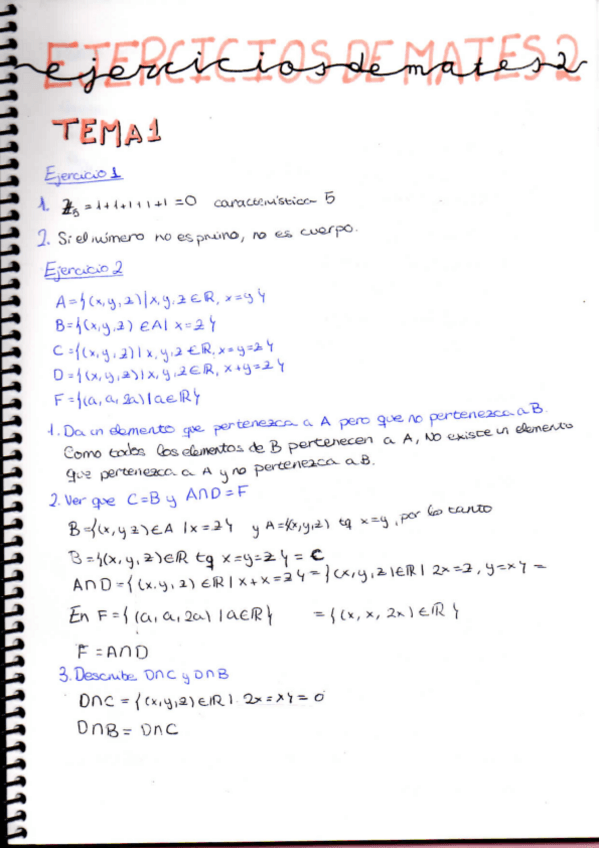 EJERCICIOS DE MATES 2
ejercicios de mates 2
TEMA 1
Ejercicio 1
1. Z₅ = 1+1+1+1+1 = 0 característica 5
2. Si el número no es primo, no es cuerpo.
Ejercicio 2
A = {(x, y, z) | x, y, z ∈ ℝ, x = y}
B = {(x, y, z) ∈ A | x = z}
C = {(x, y, z) | x, y, z ∈ ℝ, x = y = z}
D = {(x, y, z) | x, y, z ∈ ℝ, x + y = z}
F = {(a, a, 2a) | a ∈ ℝ}
1. Da un elemento que pertenezca a A pero que no pertenezca a B.
Como todos los elementos de B pertenecen a A, No existe un elemento
que pertenezca a A y no pertenezca a B.
2. Ver que C = B y A∩D = F
B = {(x, y z) ∈ A | x = z} y A = {(x, y, z) tq x = y, por lo tanto
B = {(x, y, z) ∈ ℝ tq x = y = z} = C
A∩D = {(x, y, z) ∈ ℝ | x + x = z} = {(x, y, z) ∈ ℝ | 2x = z, y = x} =
En F = {(a, a, 2a) | a ∈ ℝ} = {(x, x, 2x) ∈ ℝ}
F = A∩D
3. Describe D∩C y D∩B
D∩C = {(x, y, z) ∈ ℝ | 2x = x} = 0
D∩B = D∩C